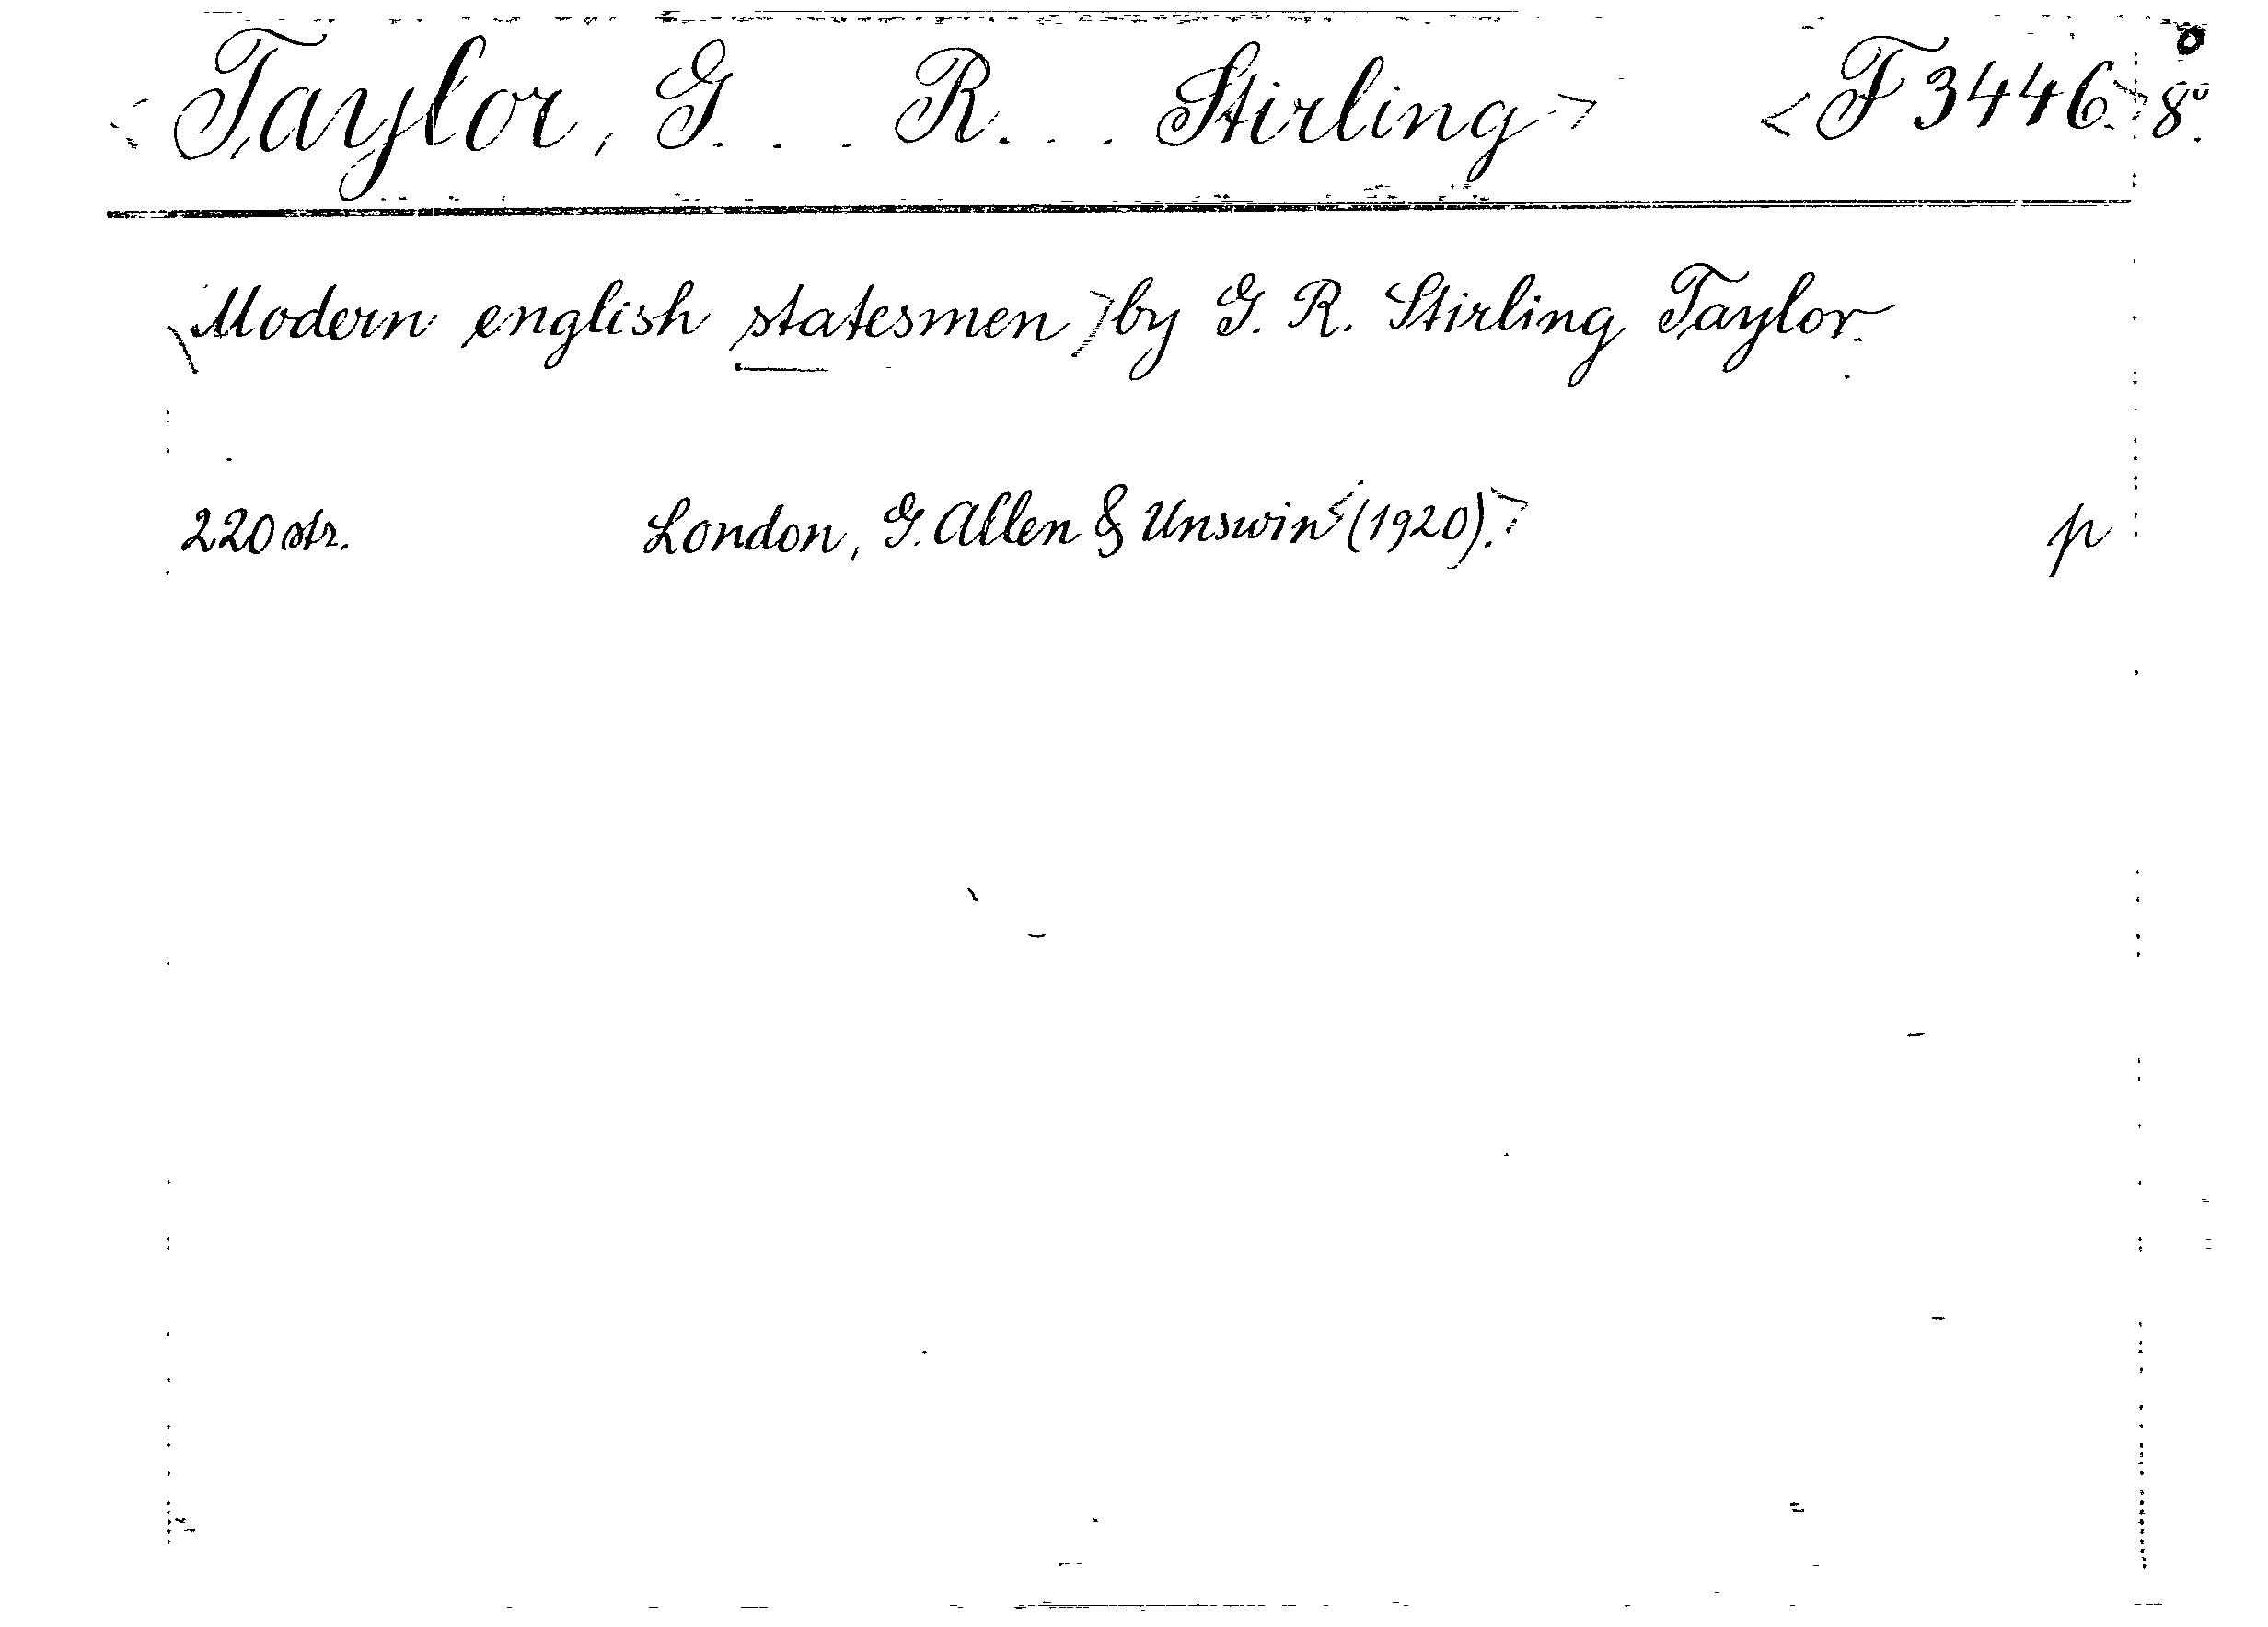 <Taylor, G. . . R. . . Stirling> <F 3446.> 8°.
<Modern english statesmen> by G. R. Stirling Taylor.
220 str. London, G. Allen & Unswin <(1920).> p